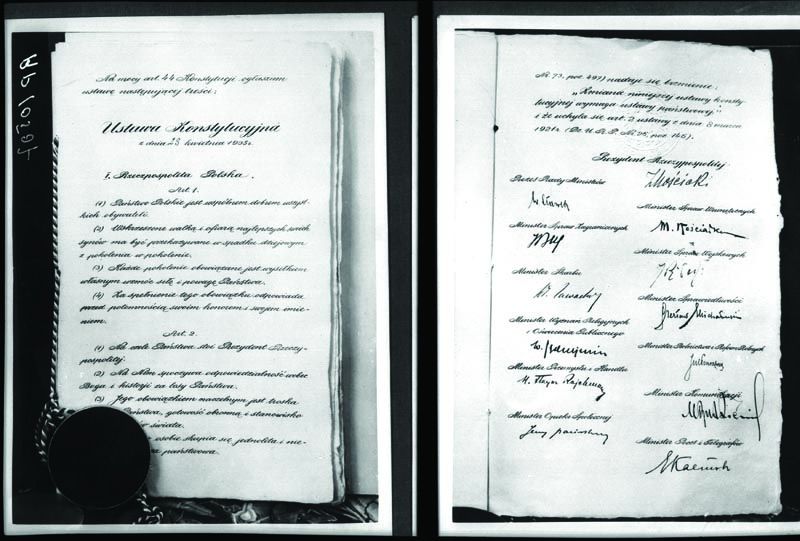 Na mocy art. 44 Konstytucji ogłaszam
ustawę następującej treści:
Ustawa Konstytucyjna
z dnia 23 kwietnia 1935r.
I. Rzeczpospolita Polska.
Art. 1.
(1) Państwo Polskie jest wspólnem dobrem wszyst-
kich obywateli.
(2) Wskrzeszone walką i ofiarą najlepszych swoich
synów ma być przekazywane w spadku dziejowym
z pokolenia w pokolenie.
(3) Każde pokolenie obowiązane jest wysiłkiem
własnym wzmóc siłę i powagę Państwa.
(4) Za spełnienie tego obowiązku odpowiada
przed potomnością swoim honorem i swojem imie-
niem.
Art. 2.
(1) Na czele Państwa stoi Prezydent Rzeczy-
pospolitej.
(2) Na Nim spoczywa odpowiedzialność wobec
Boga i historji za losy Państwa.
(3) Jego obowiązkiem naczelnym jest troska
Państwa, gotowość obronną i stanowisko
świata.
osobie skupia się jednolita i nie-
państwowa.
Nr. 73, poz. 497) nadaje się brzmienie:
"Zmiana niniejszej ustawy konsty-
tucyjnej wymaga ustawy państwowej."
i że uchyla się art. 2 ustawy z dnia 8 marca
1921r. (Dz. U. R. P. Nr. 25, poz. 145).
Prezydent Rzeczypospolitej
I Mościcki
Prezes Rady Ministrów
Minister Spraw Wewnętrznych
Minister Spraw Zagranicznych
Minister Spraw Wojskowych
Minister Skarbu
Minister Sprawiedliwości
Minister Wyznań Religijnych
i Oświecenia Publicznego
Minister Rolnictwa i Reform Rolnych
Minister Przemysłu i Handlu
Minister Komunikacji
Minister Opieki Społecznej
Minister Poczt i Telegrafów